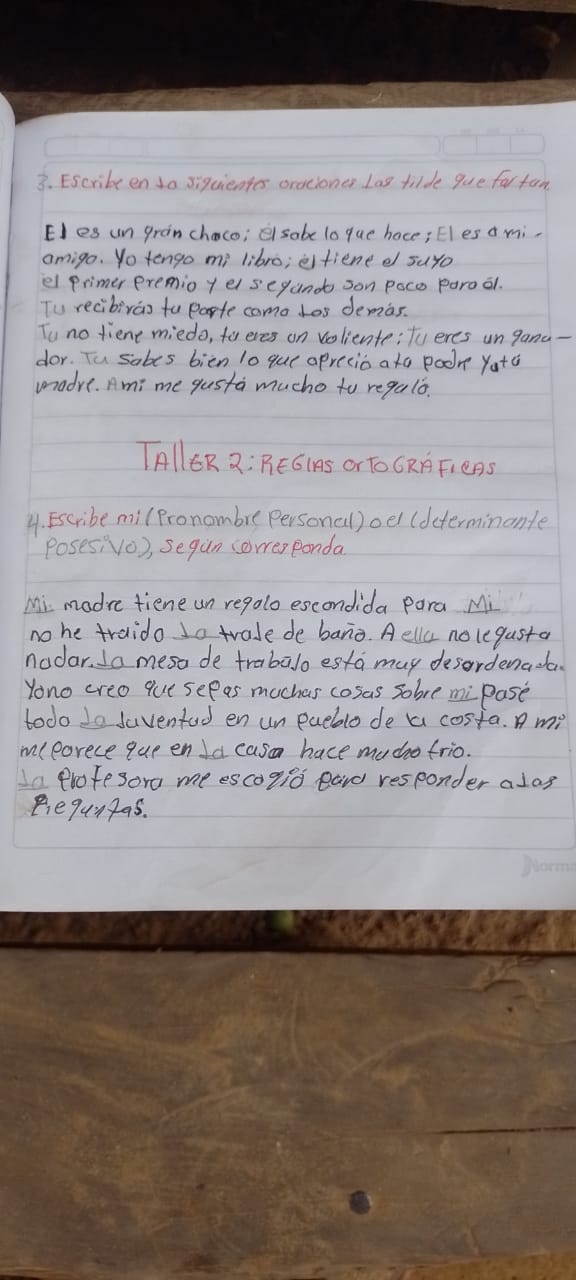 3. Escribe en la siguientes oraciones las tilde que faltan
El es un gran choco; él sabe lo que hace; El es a mi-
amigo. Yo tengo mi libro; él tiene el suyo
el primer premio y el segando son poco para él.
Tu recibirás tu parte como los demás.
Tú no tiene miedo, tu eres un valiente; Tu eres un gana-
dor. Tu sabes bien lo que apreció a tu padre y a tú
madre. Ami me gustá mucho tu regaló.
TAllER 2: REGlAS ORTOGRÁFICAS
4. Escribe mi (Pronombre Personal) o el (determinante
Posesivo), según corresponda
Mi madre tiene un regalo escondida para Mi
no he traido la traje de baño. A ella no le gusta
nadar. la mesa de trabalo está muy desordenada.
Yo no creo que sepas muchas cosas sobre mi pasé
todo la Juventud en un pueblo de la costa. A mi
me parece que en la casa hace mucho frio.
la Profesora me escogió para responder a las
Preguntas.
Norma